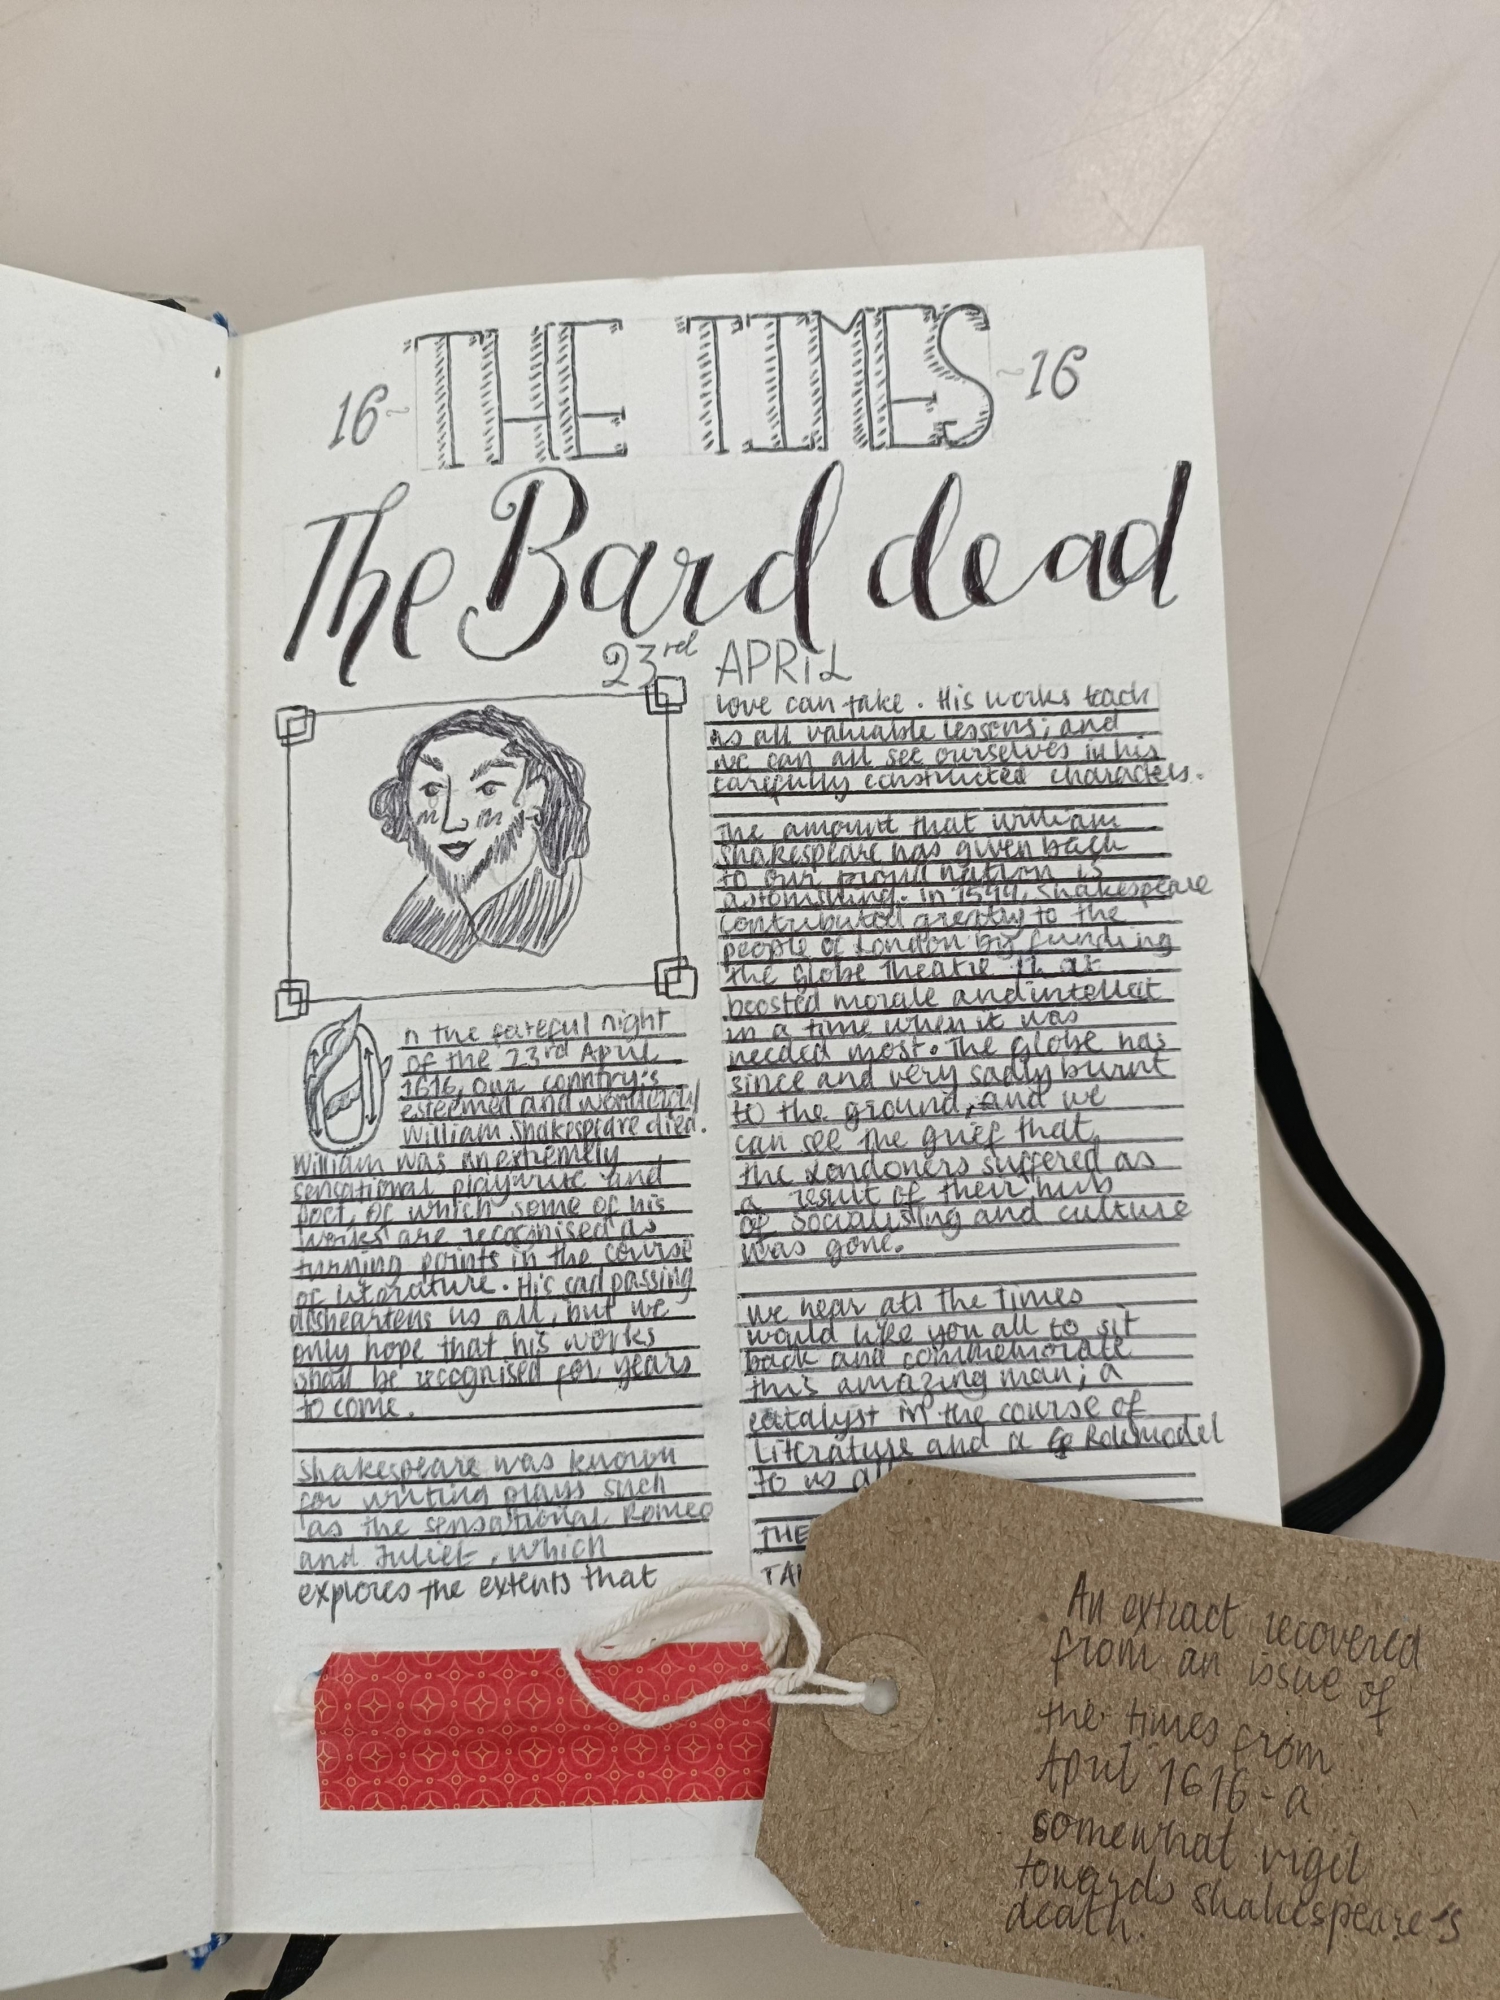 16~ THE TIMES ~16
The Bard dead
23rd APRIL
On the fateful night
of the 23rd April
1616, our country's
esteemed and wonderful
William Shakespeare died.
William was an extremely
sensational playwrite and
poet, of which some of his
works are recognised as
turning points in the course
of literature. His sad passing
disheartens us all, but we
only hope that his works
shall be recognised for years
to come.
Shakespeare was known
for writing plays such
as the sensational Romeo
and Juliet, which
explores the extents that
love can take. His works teach
us all valuable lessons; and
we can all see ourselves in his
carefully constructed characters.
The amount that William
Shakespeare has given back
to our proud nation is
astonishing. In 1599, Shakespeare
contributed greatly to the
people of London by funding
the Globe Theatre. It
boosted morale and intellect
in a time when it was
needed most. The Globe has
since and very sadly burnt
to the ground, and we
can see the grief that
the Londoners suffered as
a result of their hub
of Socialising and culture
was gone.
we hear at The Times
would like you all to sit
back and commemorate
this amazing man; a
catalyst in the course of
Literature and a Rolemodel
to us al
THE
TA
An extract recovered
from an issue of
the times from
April 1616 - a
somewhat vigil
towards Shakespeare's
death.